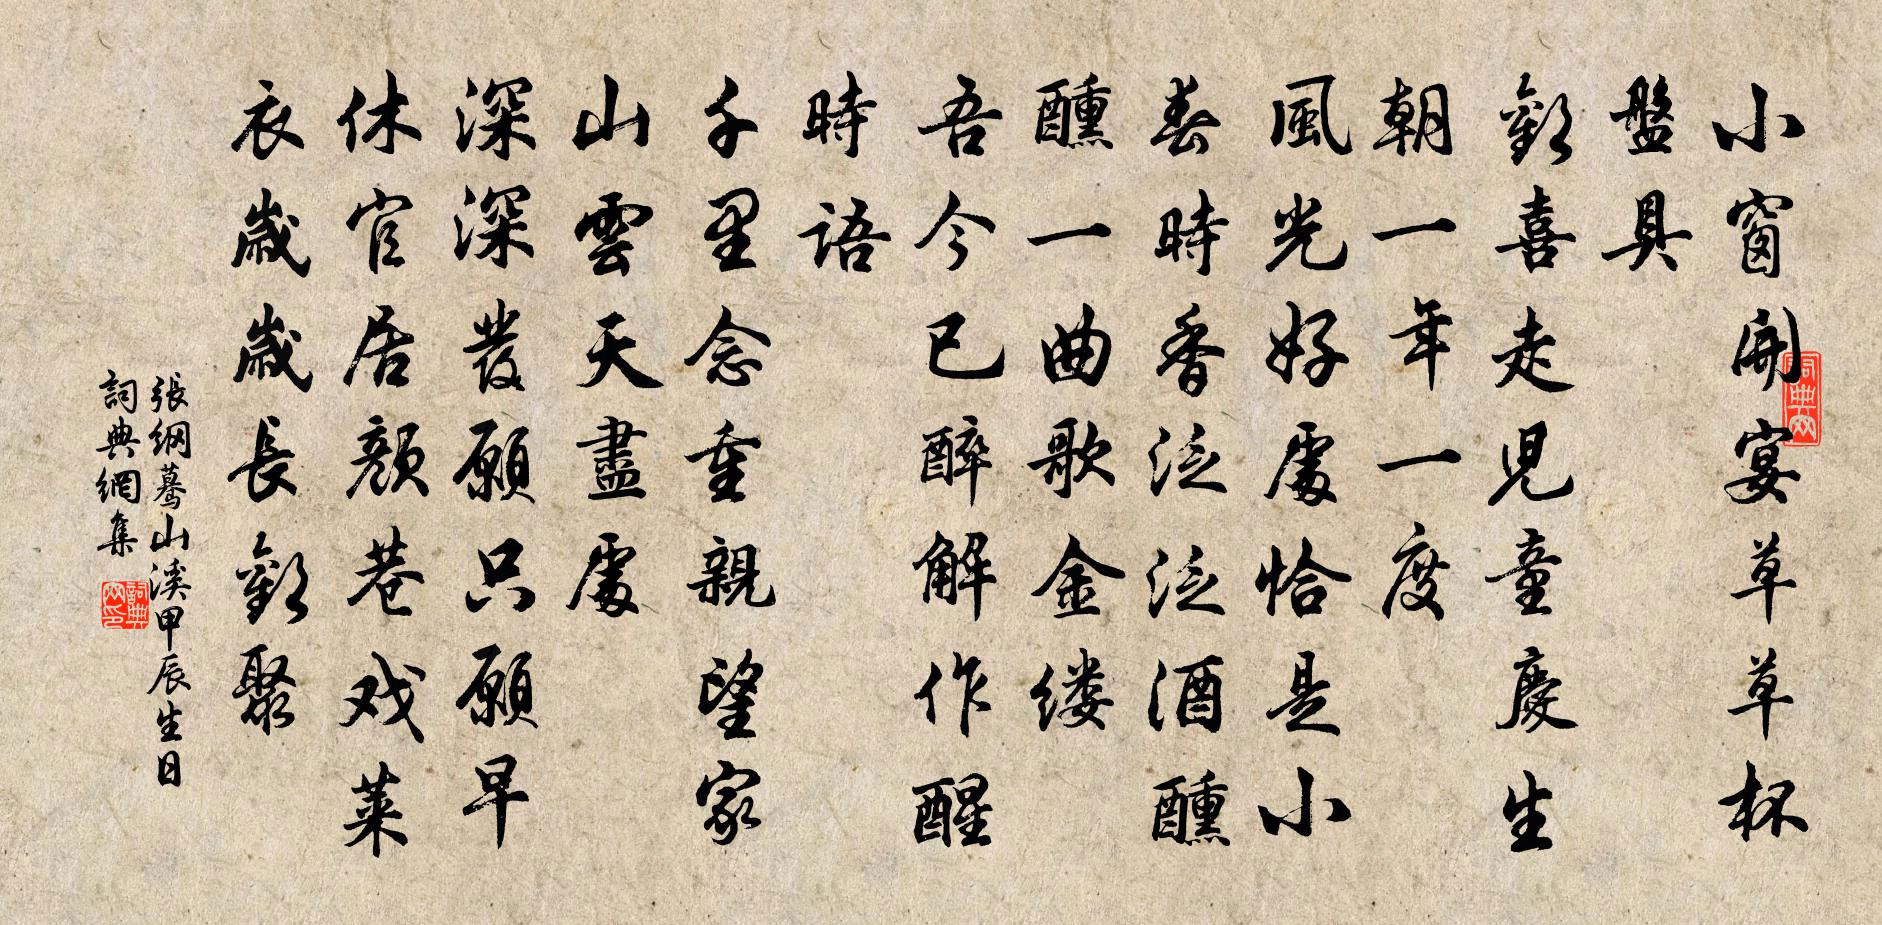 小窗開宴草草杯
盤具
歡喜走兒童慶生
朝一年一度
風光好處恰是小
春時香泛泛酒醺
醺一曲歌金缕
吾今已醉解作醒
時語
千里念重親望家
山雲天盡處
深深發願只願早
休官居顏巷戏萊
衣歲歲長歡聚
張纲驀山溪甲辰生日
詞典網集
詞典网
詞典网印